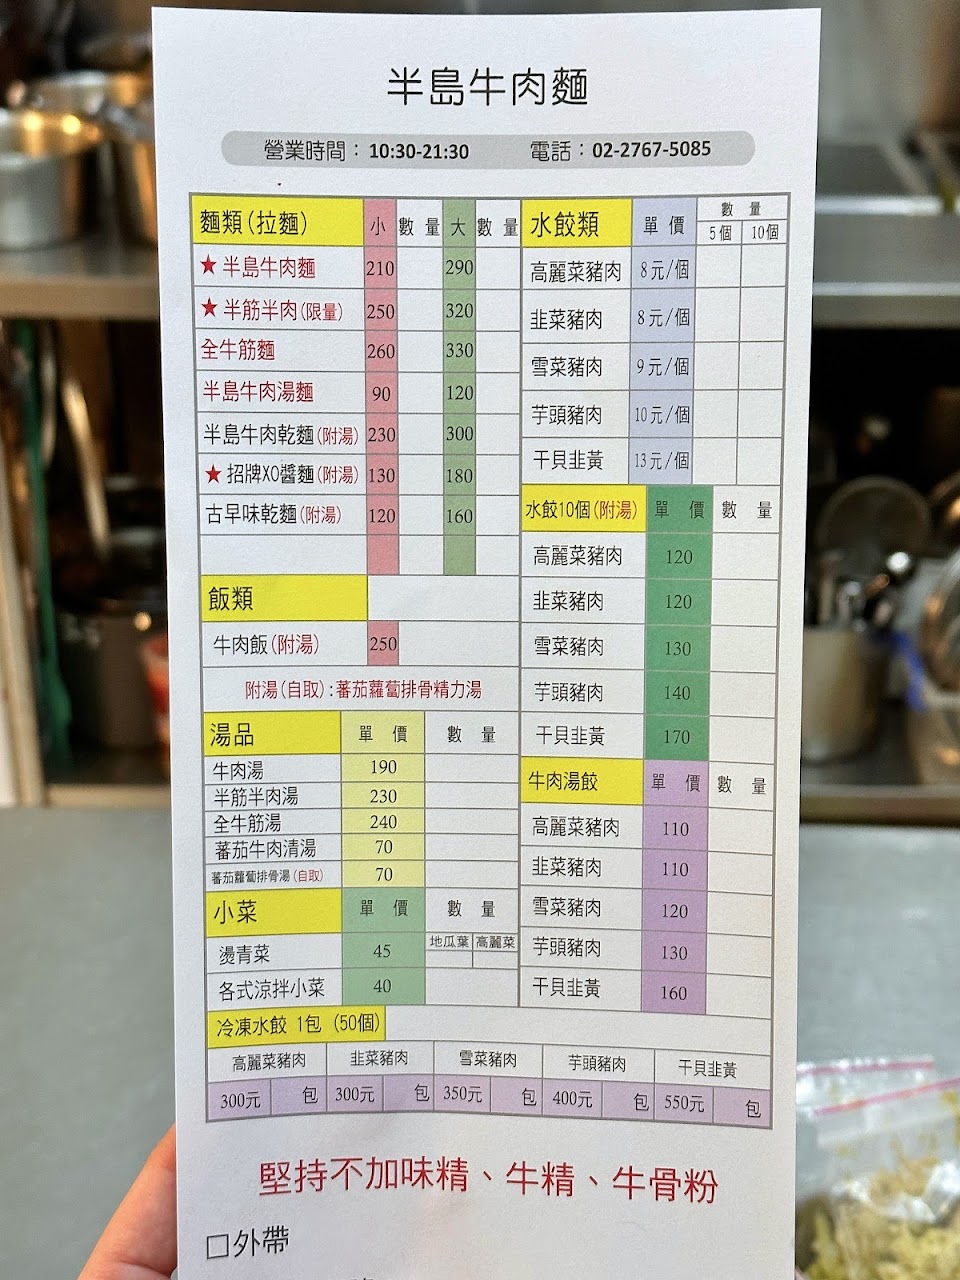 半島牛肉麵
營業時間：10:30-21:30 電話：02-2767-5085
麵類(拉麵) 小 數量 大 數量
★半島牛肉麵 210 290
★半筋半肉(限量) 250 320
全牛筋麵 260 330
半島牛肉湯麵 90 120
半島牛肉乾麵(附湯) 230 300
★招牌XO醬麵(附湯) 130 180
古早味乾麵(附湯) 120 160
飯類
牛肉飯(附湯) 250
附湯(自取):蕃茄蘿蔔排骨精力湯
湯品 單價 數量
牛肉湯 190
半筋半肉湯 230
全牛筋湯 240
蕃茄牛肉清湯 70
蕃茄蘿蔔排骨湯(自取) 70
小菜 單價 數量
燙青菜 45 地瓜葉 高麗菜
各式涼拌小菜 40
水餃類 單價 數量
5個 10個
高麗菜豬肉 8元/個
韭菜豬肉 8元/個
雪菜豬肉 9元/個
芋頭豬肉 10元/個
干貝韭黃 13元/個
水餃10個(附湯) 單價 數量
高麗菜豬肉 120
韭菜豬肉 120
雪菜豬肉 130
芋頭豬肉 140
干貝韭黃 170
牛肉湯餃 單價 數量
高麗菜豬肉 110
韭菜豬肉 110
雪菜豬肉 120
芋頭豬肉 130
干貝韭黃 160
冷凍水餃 1包 (50個)
高麗菜豬肉 韭菜豬肉 雪菜豬肉 芋頭豬肉 干貝韭黃
300元 包 300元 包 350元 包 400元 包 550元 包
堅持不加味精、牛精、牛骨粉
□外帶